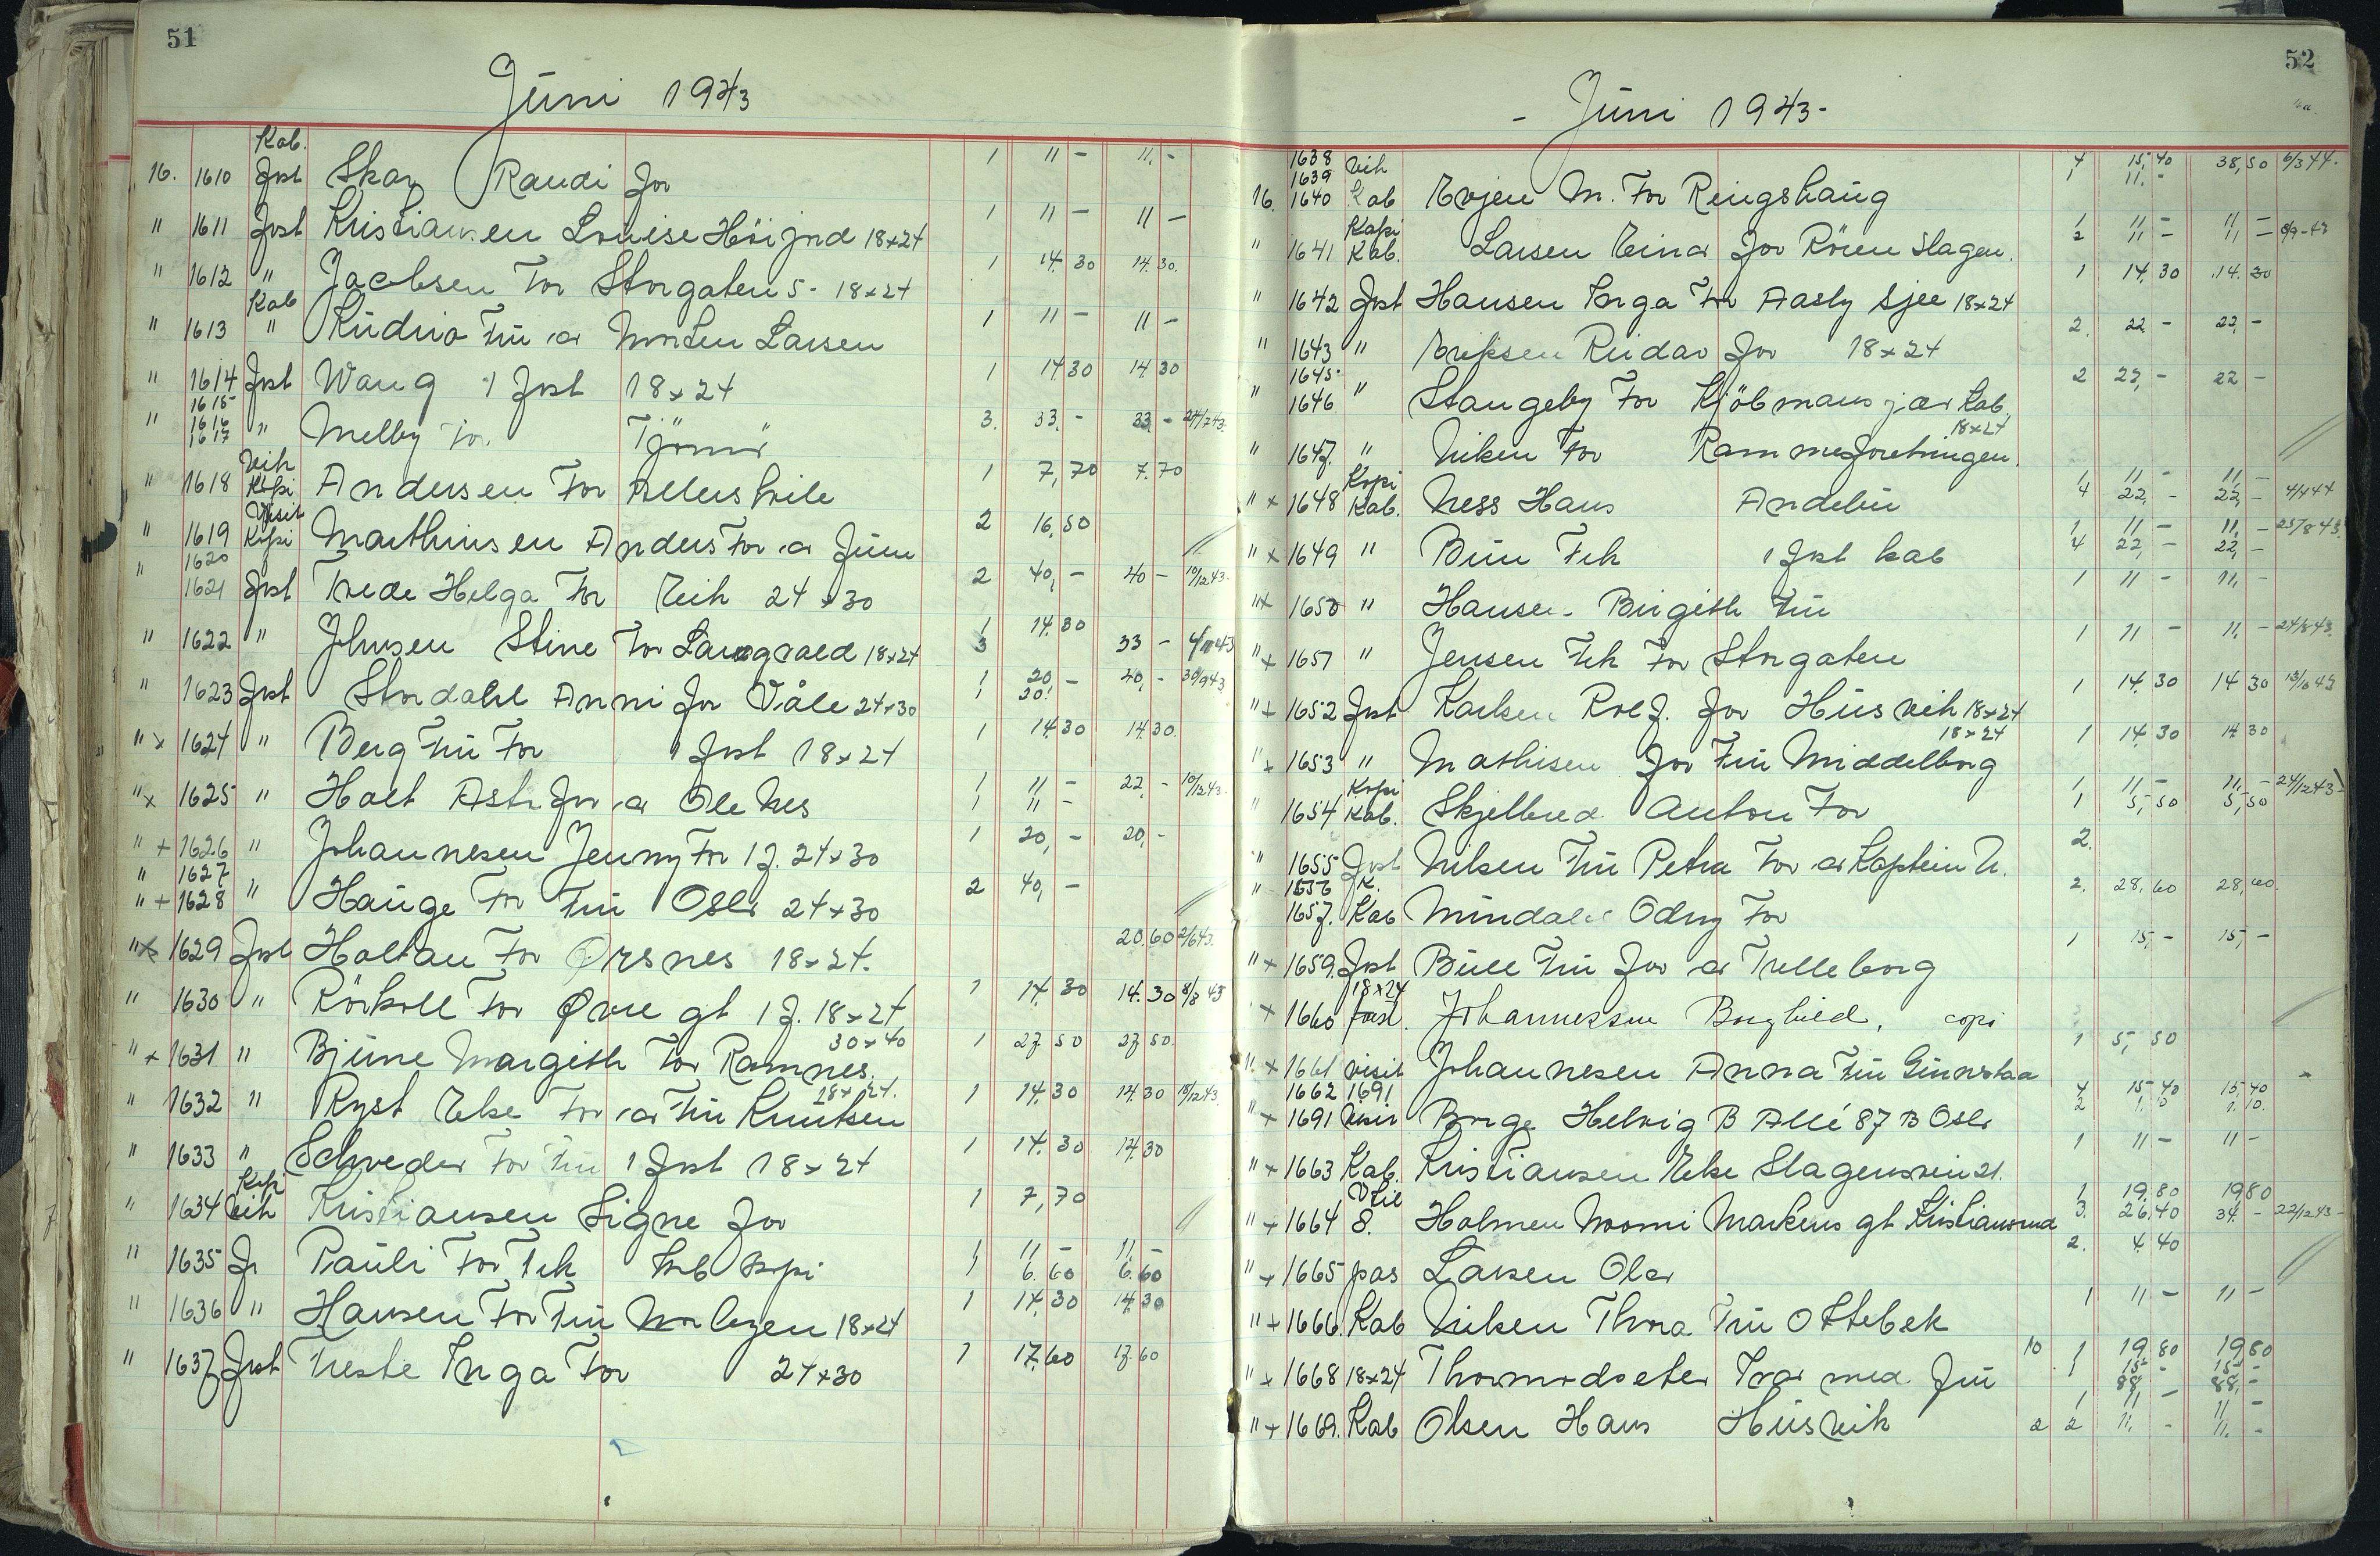 51
Juni 1943
Kab.
16. 1610 Jost Skar Randi for 1 11 - 11.-
" 1611 Jost Kristiansen Louise Höijord 18x24 1 11 - 11 -
" 1612 " Jacobsen For Storgaten 5- 18x24 1 14.30 14.30.
Kab
" 1613 " Rudno Fru ar Morten Larsen 1 11 - 11 -
" 1614 Jost Wang 1 Jost 18x24 1 14.30 14.30
1615
1616
" 1617 " Melby For Tjömö 3. 33.- 33,- 24/7 43.
Vih
" 1618 Kopi Andersen For 1 7,70 7.70
Visit
" 1619 Kopi Marthinsen Anders For ar June 2 16,50
" 1620
1621 Jost Trede Helga For Vih 24x30 2 40,- 40 - 10/12 43.
" 1622 " Johnsen Stine For Langvald 18x24 1 14.30
3 33 -
" 1623 Jost Stordahl Anni for Våle 24x30 1 20 - 40,- 30/9 43
1 20!
" x 1624 " Berg Fru For 1 Jost 18x24 1 14.30 14.30.
" x 1625 " Holt Astr for ar Ole Nes 1 11 - 22,- 10/12 43.
1 11 -
" + 1626 " Johannesen Jenny For 1 J. 24x30 1 20,- 20,-
" 1627
" + 1628 " Hauge For Fru Oslo 24x30 2 40,-
" x 1629 Jost Holtan For Ørsnes 18x24. 20.60 2/6 43.
" 1630 " Rörkoll For Øvre gt 1 J. 18x24 1 14.30 14.30 8/8 43
30x40
" x 1631 " Bjune Margith For Ramnes. 1 27.50 27.50.
18x24.
" 1632 " Ryst Else For ar Fru Knutsen 1 14.30 14.30 18/12 43.
" 1633 " Schrøder For Fru 1 Jost 18x24 1 14.30 14.30
Kopi
" 1634 Vih Kristiansen Signe for 1 7,70
" 1635 Jr Pauli For Frk Kab Kopi 1 11.- 11.-
1 6.60 6.60
" 1636 " Hansen For Fru 18x24 1 14.30 14.30
" 1637 Jost Neste Inga For 24x30 1 17.60 17.60
52
- Juni 1943-
1638 Vih 4 15,40 38,50 6/3 44.
1639 1 11.-
16. 1640 Kab Evjen M. For Ringshaug
Kopi 1 11 - 11 -
" 1641 Kab. Larsen Einar for Rören Slagen. 2 11 - 11 -
" 1642 Jost Hansen Inga For Aasly Sjee 18x24 1 14.30 14.30
" 1643 " Eriksen Reidar for 18x24 2. 22 - 22,-
1645
" 1646 " Stangeby For Kjöbmansgær Kab. 2 22,- 22 -
18x24
" 1647. " Nilsen For Rammeforetningen.
Kopi 1 11 - 11,-
" x 1648 Kab. Ness Hans Andebu 4 22,- 22,- 4/4 44
" x 1649 " Bun Frk 1 Jost kab 1 11 - 11.- 25/8 43.
4 22,- 22,-
" x 1650 " Hansen Birgith Fru 1 11 - 11,-
" x 1651 " Jensen Frk For Storgaten 1 11 - 11.- 24/8 43.
" + 1652 Jost Karlsen Rolf. for Husvik 18x24 1 14.30 14 30 13/10 43
18x24
" x 1653 " Mathisen for Fru Middelborg 1 14.30 14 30
Kopi 1 11 - 11,- 24/12 43
" 1654 Kab. Skjelbred Anton For 1 5,50 5,50
" 1655 Jost Nilsen Fru Petra For ar Kaptein N. 2.
" 1656 K.
1657. Kab Mindal Odny For 2. 28,60 28,60.
" x 1659. Jost Bull Fru for ar Trelleborg 1 15,- 15,-
18x24
x 1660 Johannessen Borghild. copi
" x 1661 visit Johannesen Anna Fru 1 5,50
1662 1691 4 15,40 15,40
" x 1691 Visit Borge Helvig B Allé 87 B Oslo 2 1.10 1.10.
" x 1663 Kab. Kristiansen Else Slagensvein 21. 1 11 - 11 -
1 19.80 19.80
" x 1664 8. Holmen Noomi Markens gt Kristiansund 3. 26.40 34.- 22/12 43-
" x 1665 pas Larsen Olar 2. 4.40
" x 1666. Kab Nilsen Thora Fru Ottebek 1 11 - 11 -
10 1 19.80 19.80
" x 1668 18x24 Thormodseter Ivar med fru 1 15 - 15 -
88,- 88,-
1 11 - 11 -
" x 1669. Kab Olsen Hans Husvik 2 2 11.- 11.-